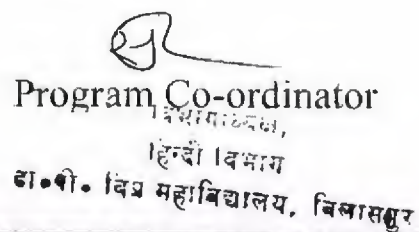 Program Co-ordinator
विभागाध्यक्ष,
हिन्दी विभाग
डा॰पी॰ विप्र महाविद्यालय, बिलासपुर